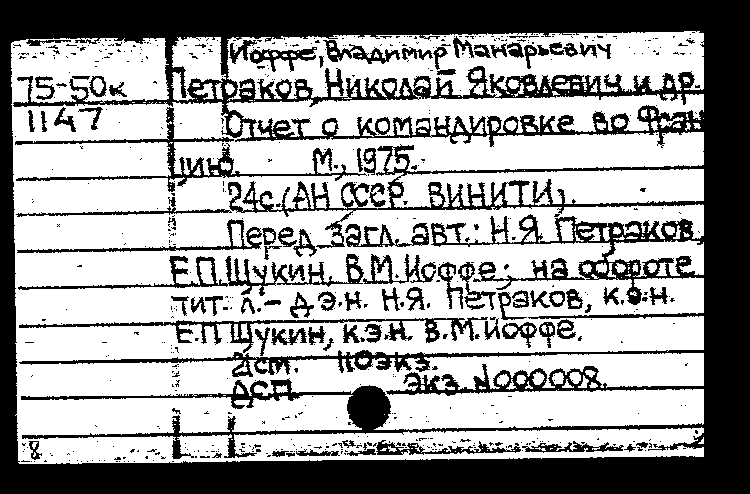 Иоффе, Владимир Манарьевич
75-50к Петраков, Николай Яковлевич и др.
1147 Отчет о командировке во Фран
цию. М., 1975.
24с. (АН СССР. ВИНИТИ).
Перед загл. авт.: Н.Я. Петраков,
Е.П. Щукин, В.М. Иоффе; на обороте
тит. л. - д.э.н. Н.Я. Петраков, к.э.н.
Е.П. Щукин, к.э.н. В.М. Иоффе.
21см. 110экз.
ДСП. Экз. N000008.
8